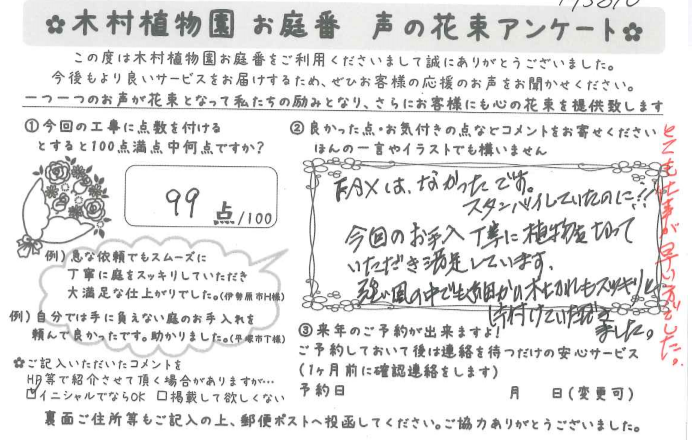 ✿木村植物園 お庭番 声の花束アンケート✿
この度は木村植物園お庭番をご利用くださいまして誠にありがとうございました。
今後もより良いサービスをお届けするため、ぜひお客様の応援のお声をお聞かせください。
一つ一つのお声が花束となって私たちの励みとなり、さらにお客様にも心の花束を提供致します
①今回の工事に点数を付ける
とすると100点満点中何点ですか?
99点/100
例)急な依頼でもスムーズに
丁寧に庭をスッキリしていただき
大満足な仕上がりでした。(伊勢原市H様)
例)自分では手に負えない庭のお手入れを
頼んで良かったです。助かりました。(平塚市T様)
✿ご記入いただいたコメントを
HP等で紹介させて頂く場合がありますが…
□イニシャルでならOK □掲載して欲しくない
②良かった点・お気付きの点などコメントをお寄せください
ほんの一言やイラストでも構いません
FAXは、なかったです。
スタンバイしていたのに!!
今回のお手入 丁寧に植物を切って
いただき満足しています。
強い風の中でも細かい木もスッキリと
片付けていただき
ました。
とても仕事が早い方でした。
③来年のご予約が出来ますよ!
ご予約しておいて後は連絡を待つだけの安心サービス
(1ヶ月前に確認連絡をします)
予約日 月 日(変更可)
裏面ご住所等もご記入の上、郵便ポストへ投函してください。ご協力ありがとうございました。